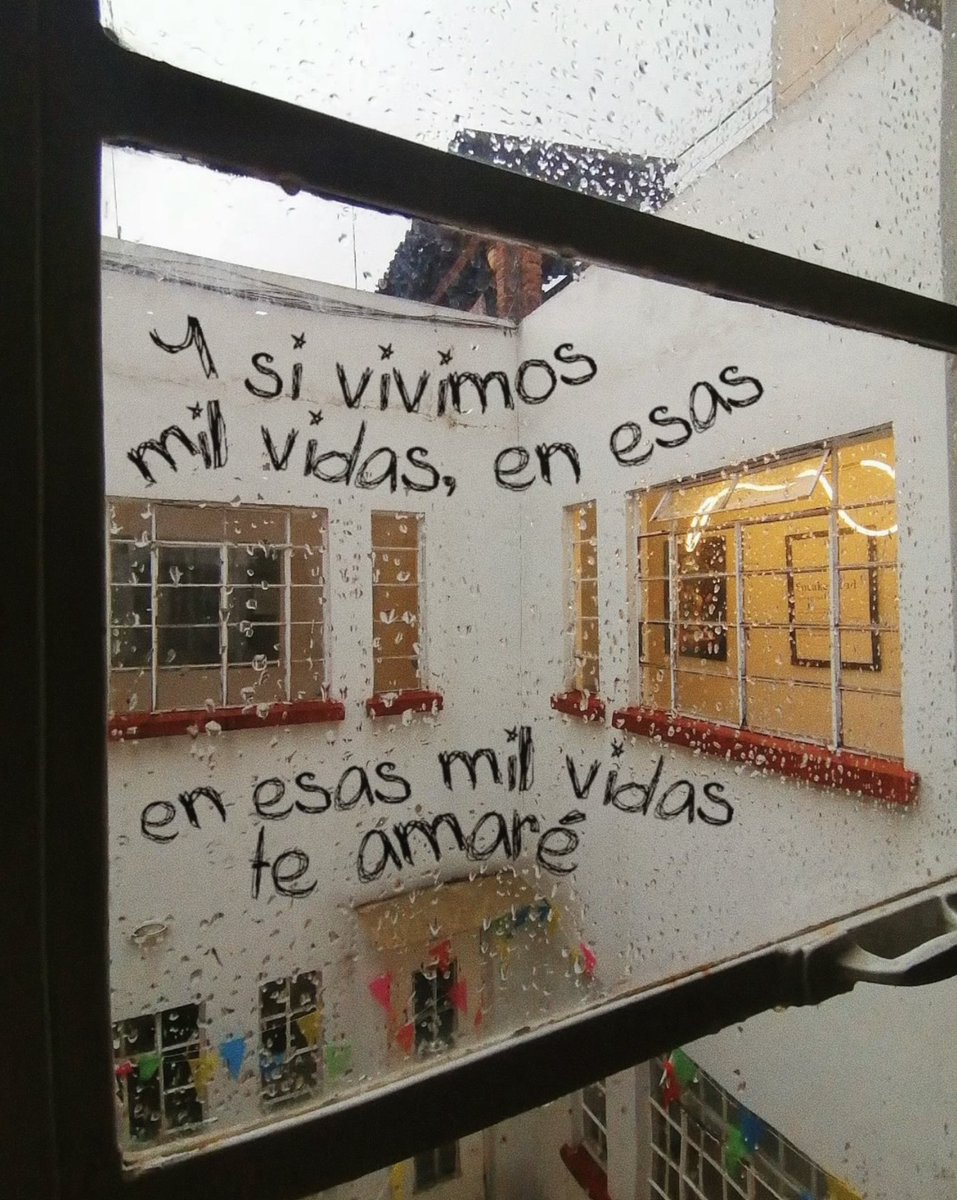 Y si vivimos
mil vidas, en esas
en esas mil vidas
te amaré